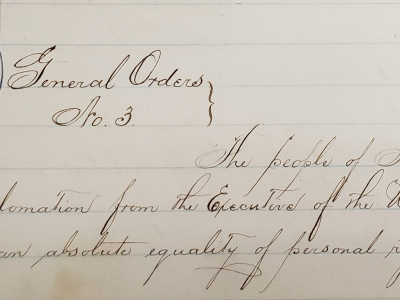 General Orders
No. 3.
The people of
lomation from the Executive of the
an absolute equality of personal